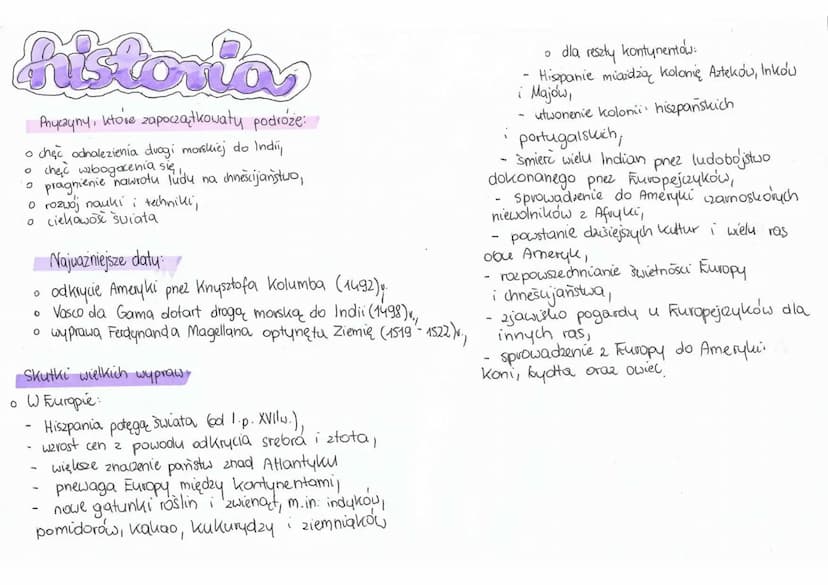 historia
Przyczyny, które zapoczątkowały podróże:
o chęć odnalezienia drogi morskiej do Indii,
o chęć wzbogacenia się,
o pragnienie nawrotu ludu na chrześcijaństwo,
o rozwój nauki i techniki,
o ciekawość świata
Najważniejsze daty:
o odkrycie Ameryki przez Krzysztofa Kolumba (1492)r.
o Vasco da Gama dotarł drogą morską do Indii (1498)r.,
o wyprawa Ferdynanda Magellana opłynęła Ziemię (1519 - 1522)r.,
Skutki wielkich wypraw
o W Europie:
- Hiszpania potęgą świata (od I. p. XVIIw.),
- wzrost cen z powodu odkrycia srebra i złota,
- większe znaczenie państw znad Atlantyku
- przewaga Europy między kontynentami,
- nowe gatunki roślin i zwierząt, m.in: indyków,
pomidorów, kakao, kukurydzy i ziemniaków
o dla reszty kontynentów:
- Hiszpanie miażdżą kolonię Azteków, Inków
i Majów,
- utworzenie kolonii hiszpańskich
i portugalskich,
- śmierć wielu Indian przez ludobójstwo
dokonanego przez Europejczyków,
- sprowadzenie do Ameryki czarnoskórych
niewolników z Afryki,
- powstanie dzisiejszych kultur i wielu ras
obu Ameryk,
- rozpowszechnianie świetności Europy
i chrześcijaństwa,
- zjawisko pogardy u Europejczyków dla
innych ras,
- sprowadzenie z Europy do Ameryki:
koni, bydła oraz owiec.